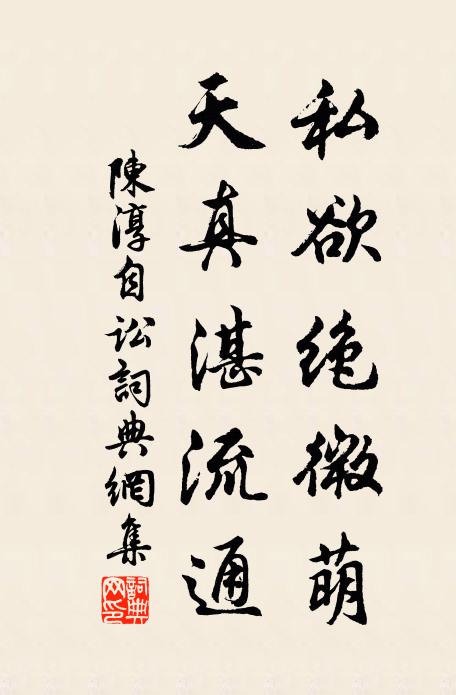 私欲绝微萌
天真湛流通
陳淳自訟詞典網集
詞典網印